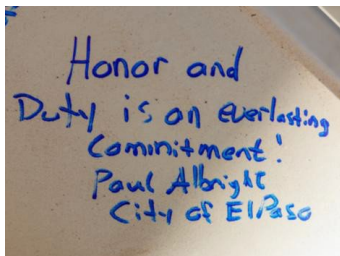 Honor and
Duty is an everlasting
Commitment!
Paul Albright
City of El Paso